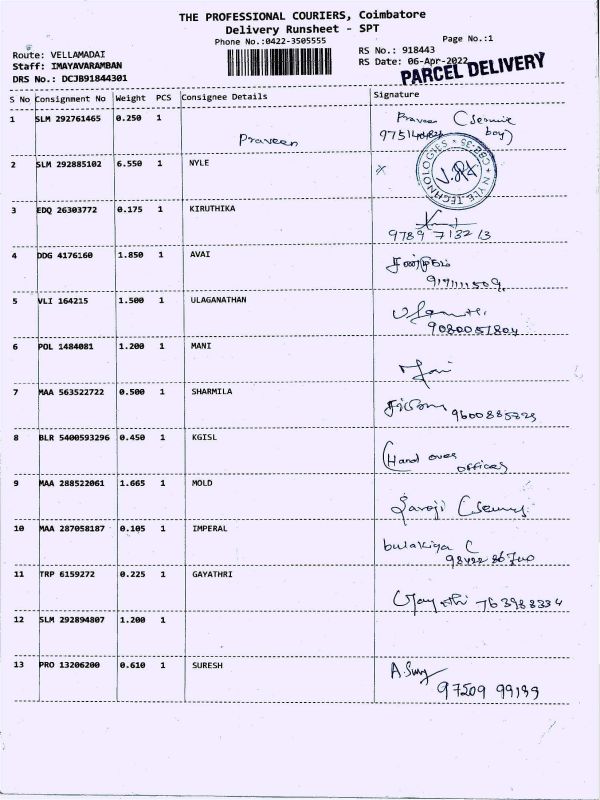 THE PROFESSIONAL COURIERS, Coimbatore
Delivery Runsheet - SPT
Phone No.:0422-3505555
Page No.:1
Route: VELLAMADAI
RS No.: 918443
Staff: IMAYAVARAMBAN
RS Date: 06-Apr-2022
DRS No.: DCJB91844301
PARCEL DELIVERY
S No Consignment No Weight PCS Consignee Details Signature
1 SLM 292761465 0.250 1 Praveen Praveen (Service boy)
2 SLM 292885102 6.550 1 NYLE
TECHNOLOGIES
3 EDQ 26303772 0.175 1 KIRUTHIKA
9789 713213
4 DDG 4176160 1.850 1 AVAI
5 VLI 164215 1.500 1 ULAGANATHAN
9080051804
6 POL 1484081 1.200 1 MANI Mani
7 MAA 563522722 0.500 1 SHARMILA
9600885729
8 BLR 5400593296 0.450 1 KGISL (Hand over
offices
9 MAA 288522061 1.665 1 MOLD Saroji
10 MAA 287058187 0.105 1 IMPERAL
11 TRP 6159272 0.225 1 GAYATHRI Gayathri 763988334
12 SLM 292894807 1.200 1
13 PRO 13206200 0.610 1 SURESH
97509 99199